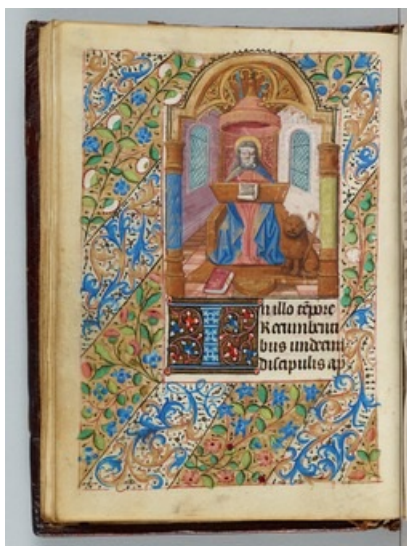 In illo tēpore
Recumbenti
bus undecim
discipulis ap